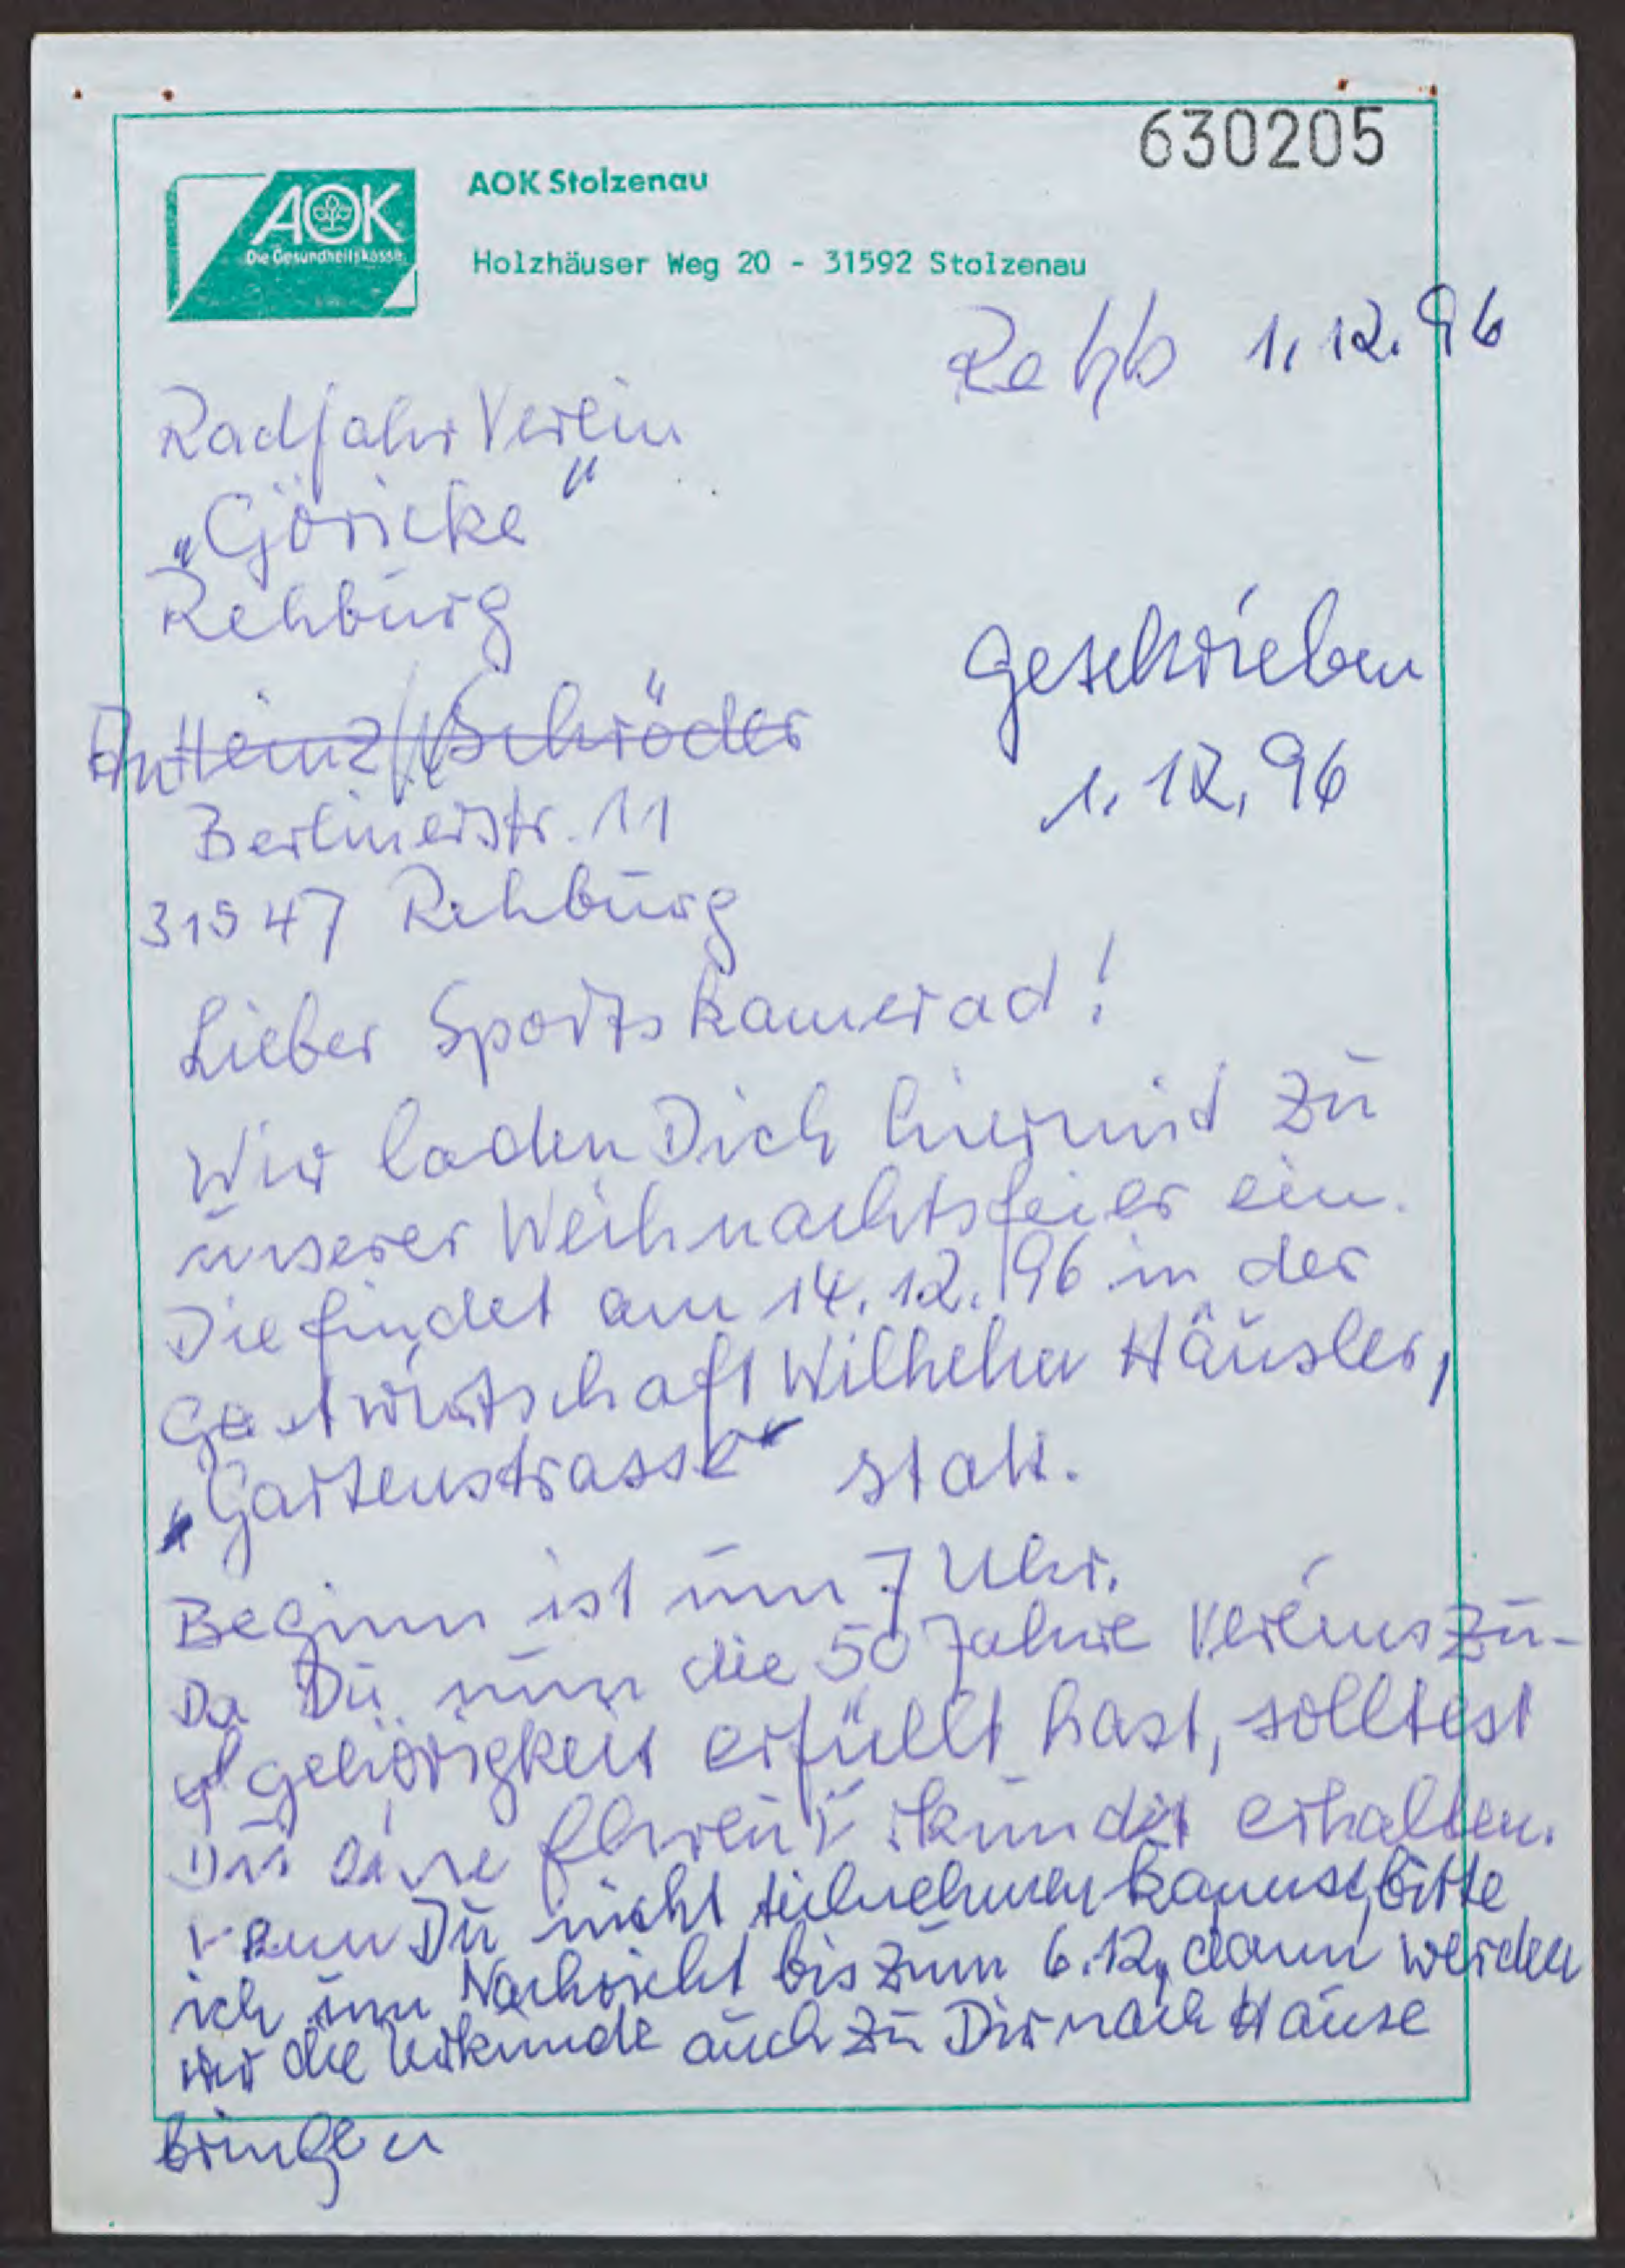 630205
AOK
Die Gesundheitskasse
AOK Stolzenau
Holzhäuser Weg 20 - 31592 Stolzenau
1.12.96
Radfahr Verein
„Göricke"
Rehburg
geschrieben
1.12.96
An Heinz Schröder
Berlinerstr. 11
31547 Rehburg
Lieber Sportskamerad!
Wir laden Dich hiermit zu
unserer Weihnachtsfeier ein.
Die findet am 14.12.96 in der
Gastwirtschaft Wilhelm Häusler,
„Gartenstrasse" statt.
Beginn ist um 7 Uhr.
Da Du nun die 50 Jahre Vereinszu-
gehörigkeit erfüllt hast, solltest
Du eine erhalten.
Wenn Du nicht teilnehmen kannst, bitte
ich um Nachricht bis zum 6.12, dann werden
wir die Urkunde auch zu Dir nach Hause
bringen